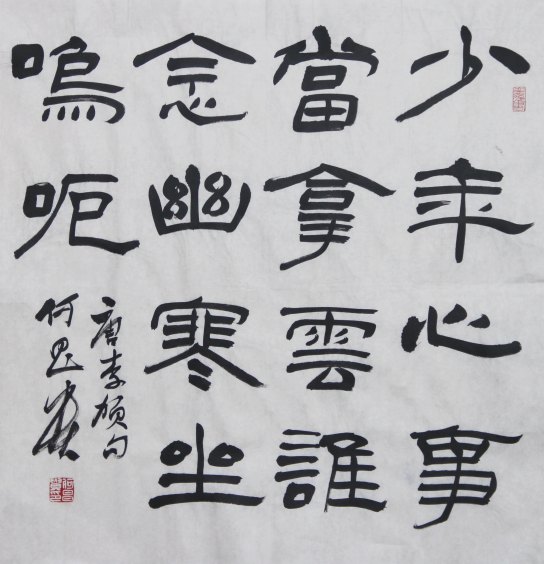 少年心事
當拿雲誰
念幽寒坐
嗚呃
唐李句
何